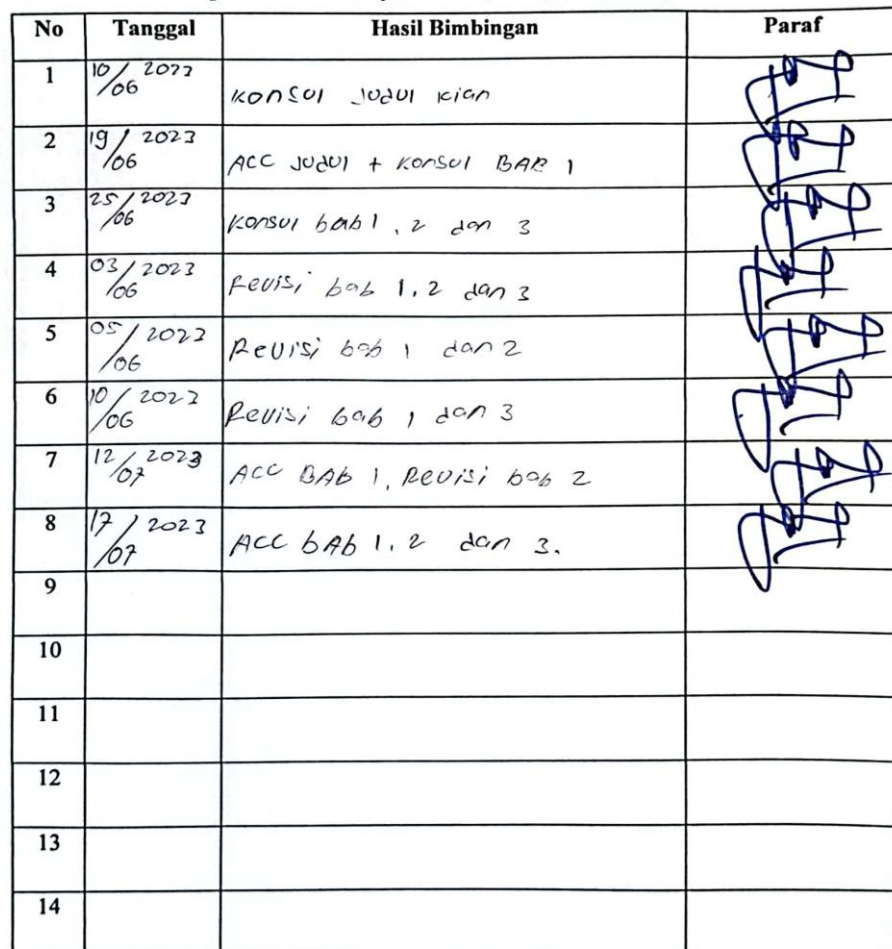 No Tanggal Hasil Bimbingan Paraf
1 10/06 2023 Konsul Judul kian
2 19/06 2023 ACC Judul + Konsul BAB 1
3 25/06 2023 Konsul bab 1, 2 dan 3
4 03/06 2023 Revisi bab 1, 2 dan 3
5 05/06 2023 Revisi bab 1 dan 2
6 10/06 2023 Revisi bab 1 dan 3
7 12/07 2023 ACC BAb 1, Revisi bab 2
8 17/07 2023 ACC bAb 1, 2 dan 3.
9
10
11
12
13
14